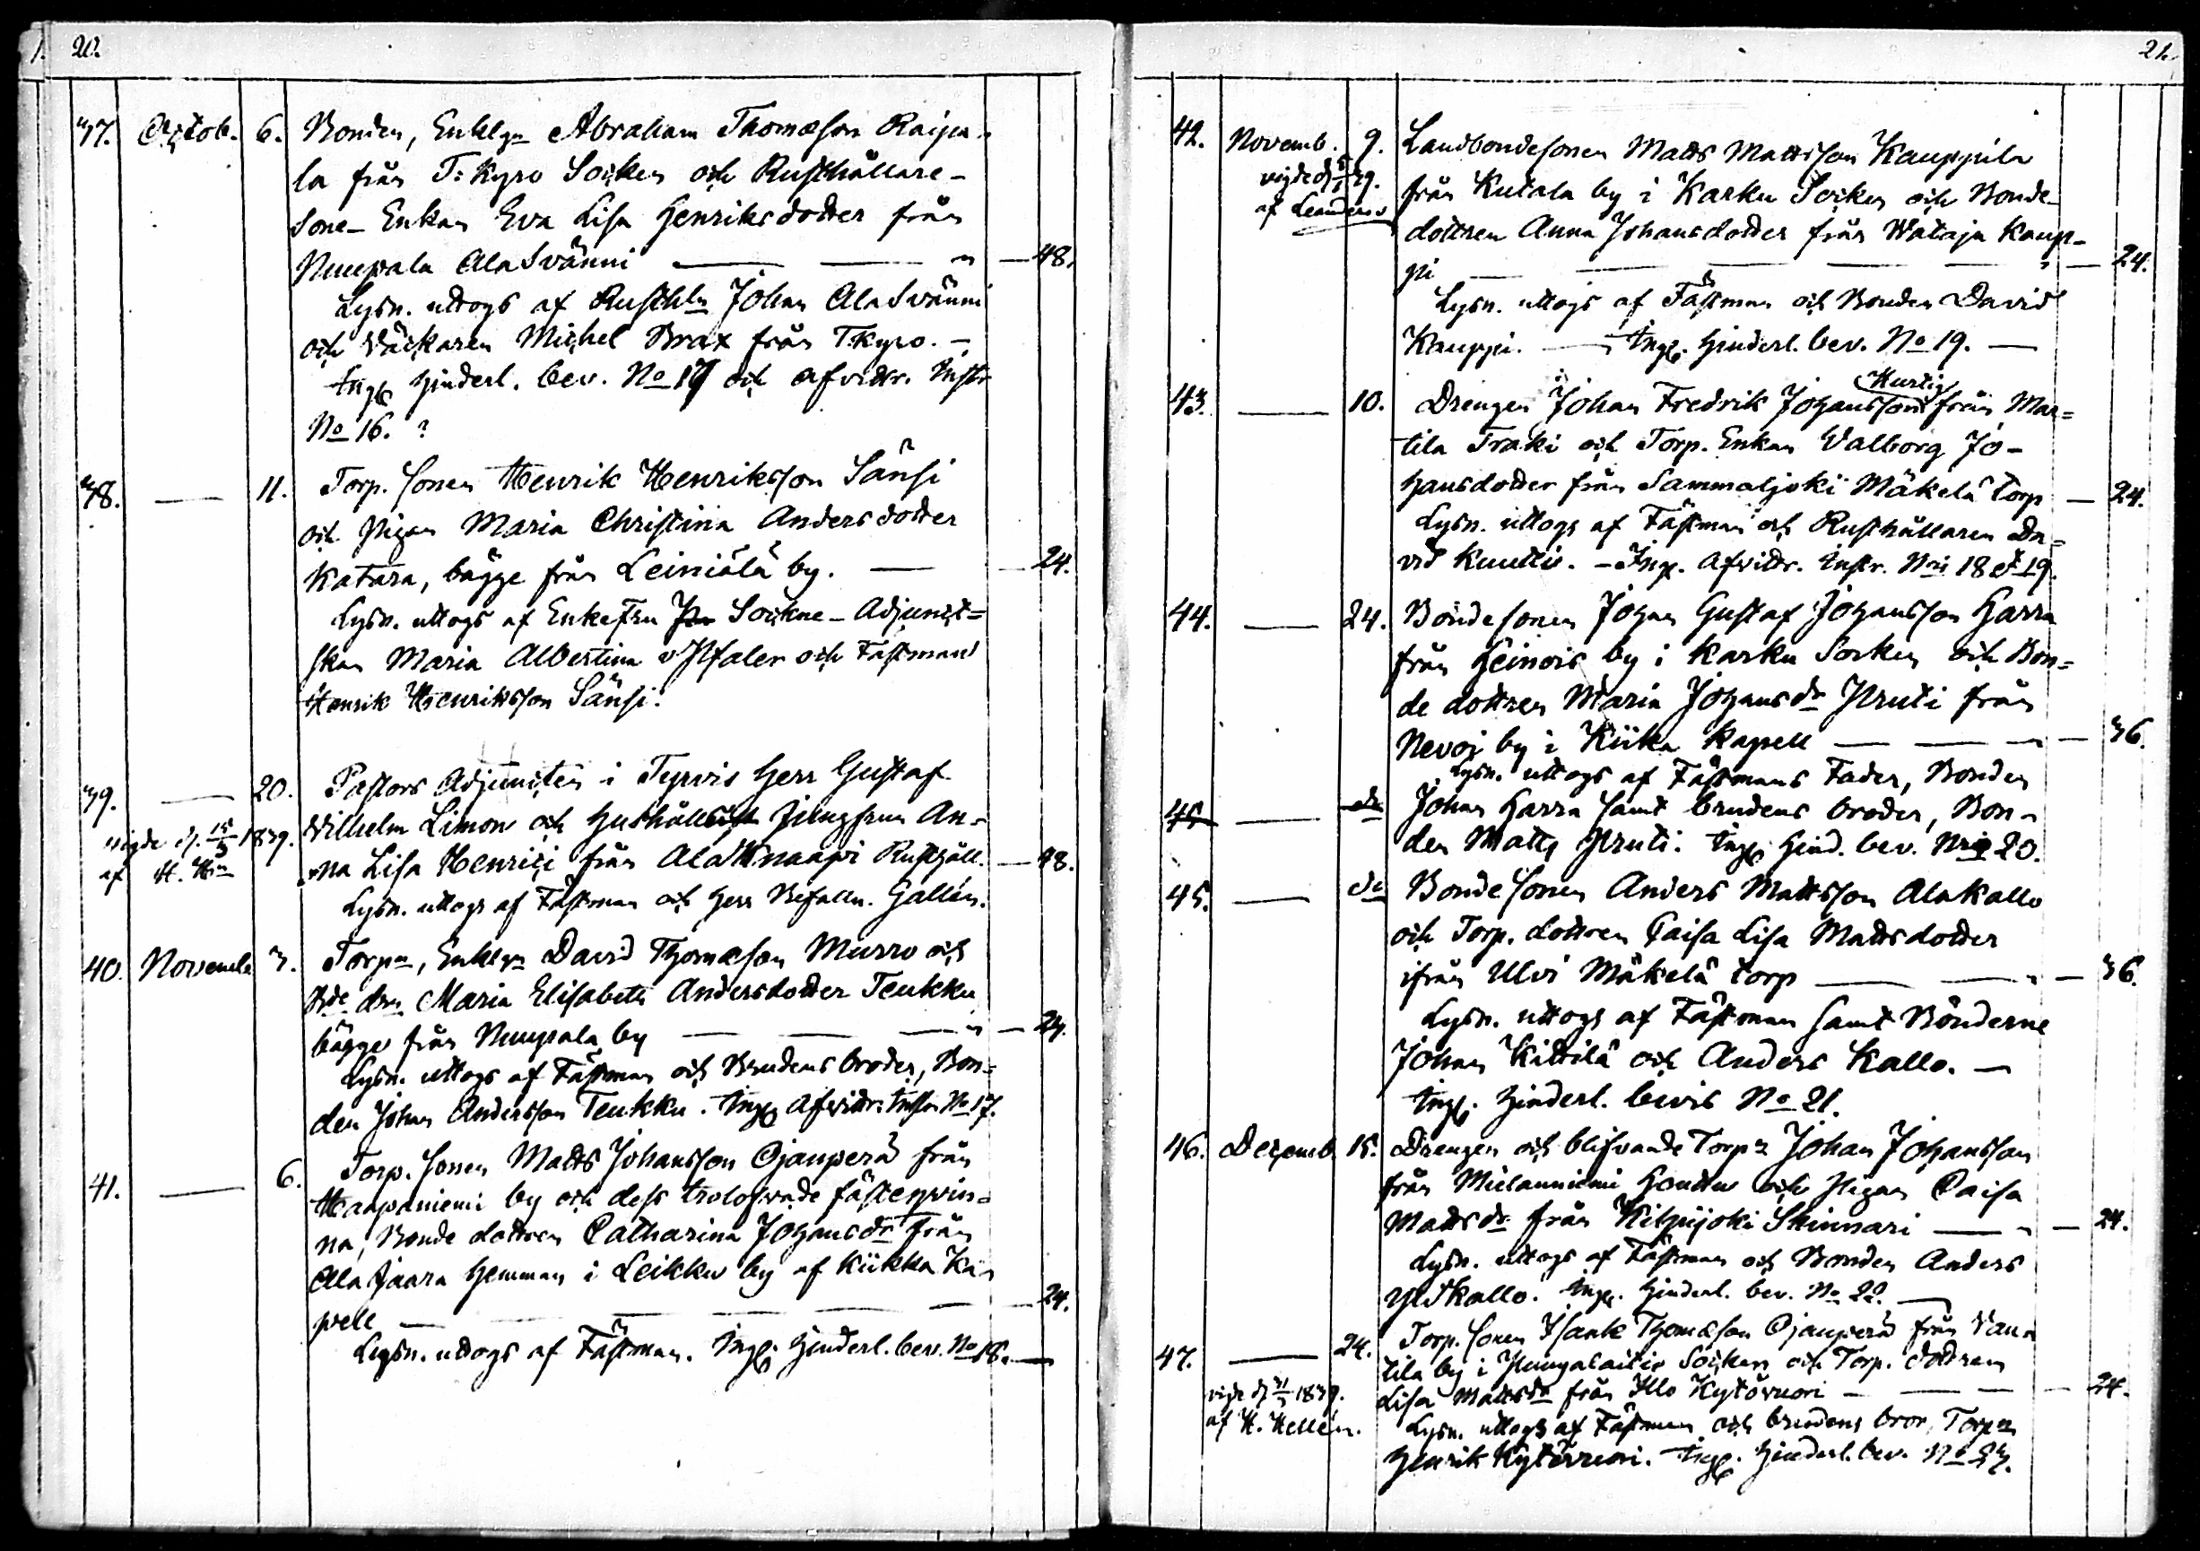 20.
37. Octob. 6. Bonden, Enklgn Abraham Thomasson Raipa-
la från T: Kyro Socken och Rusthållare-
sone- Enkan Eva Lisa Henriksdotter från
Nuupala AlaSvänni — — — 48.
Lysn. uttogs af Rusthln Johan AlaSvänni
och Väckaren Michel Brax från TKyro. —
Ings Hinderl. bev. No 17 och afvittr. Instr
No 16. ?
38. — 11. Torp. sonen Henrik Henriksson Sänsi
och Pigan Maria Christina Andersdotter
Katara, bägge från Leiniälä by. — — 24.
Lysn. uttogs af Enkefru Sockne-Adjunct-
skan Maria Albertina Ilfaler och Fästman
Henrik Henriksson Sänsi.
39. — 20. Pastors Adjuncten i Tyrvis Herr Gustaf
vigde d. 15/3 1839. Wilhelm Limon och Jungfrun An-
af H. Hn na Lisa Henrici från AlaKnaapi Rusthåll. — 48.
Lysn. uttogs af Fästman och Herr Befalln. Gallén.
40. Novemb. 3. Torpn, Enklgn David Thomasson Murro och
Bde drn Maria Elisabeth Andersdotter Teukku
bägge från Nuupala by — — — 24.
Lysn. uttogs af Fästman och Brudens broder, Bon-
den Johan Andersson Teukku. Ings Afvittr. Instr No 17.
41. — 6. Torp. sonen Matts Johansson Ojanperä från
Haapaniemi by och dess trolofvade fästeqvin-
na, Bonde dottren Catharina Johansdr från
Ala Jaara Hemman i Leikku by af Kiikka Ka-
pell — — — — 24.
Lysn. uttogs af Fästman. Ings. Hinderl. bev. No 18. —
21.
42. Novemb. 9. Landbondesonen Matts Mattsson Kauppila
vigde d 39. från Kutala by i Karku Socken och Bonde-
af Leander dottren Anna Johansdotter från Wataja Kaup-
pi — — — — — 24.
Lysn. uttogs af Fästman och Bonden David
Kauppi. — Ings. Hinderl. bev. No 19. —
Hurtig
43. — 10. Drengen Johan Fredrik Johansson från Mar-
tila Fraki och Torp. Enkan Valborg Jo-
hansdotter från Sammaljoki Mäkelä torp — 24.
Lysn. uttogs af Fästman och Rusthållaren Da-
vid Knuttis. — Ings. Afvittr. Instr. Nris 18 & 19.
44. — 24. Bondesonen Johan Gustaf Johansson Harra
från Heinois by i Karku Socken och Bon-
de dottren Maria Johansdr Pruti från
Nevoi by i Kiika Kapell — — — 36.
Lysn. uttogs af Fästmans Fader, Bonden
45. — do Johan Harra samt brudens broder, Bon-
den Matts Pruti. Ings. Hind. bev. Nris 20.
45. — do Bonde sonen Anders Mattsson AlaKallo
och Torp. dottren Caisa Lisa Mattsdotter
ifrån Ulvi Mäkelä torp — — — 36.
Lysn. uttogs af Fästman samt Bönderne
Johan Kittilä och Anders Kallo. —
Ings. Hinderl. bevis No 21.
46. Decemb. 15. Drengen och blifvande Torpn Johan Johansson
från Mielanniemi Houdtu och Pigan Caisa
Mattsdr från Kilpijoki Skinnari — — 24.
Lysn. uttogs af Fästman och Bonden Anders
YliKallo. Ings. Hinderl. bev. No 22. —
47. — 24. Torp. sonen Isaak Thomasson Ojanperä från Van-
tila by i Pungalaitio Socken och Torp. dottren
vigde d 31/3 1839. Lisa Mattsdr från Illo Kytövuori — — — 24.
af H. Hellén. Lysn. uttogs af Fästman och brudens bror, Torpn
Henrik Kytövuori. Ings. Hinderl. bev. No 23.